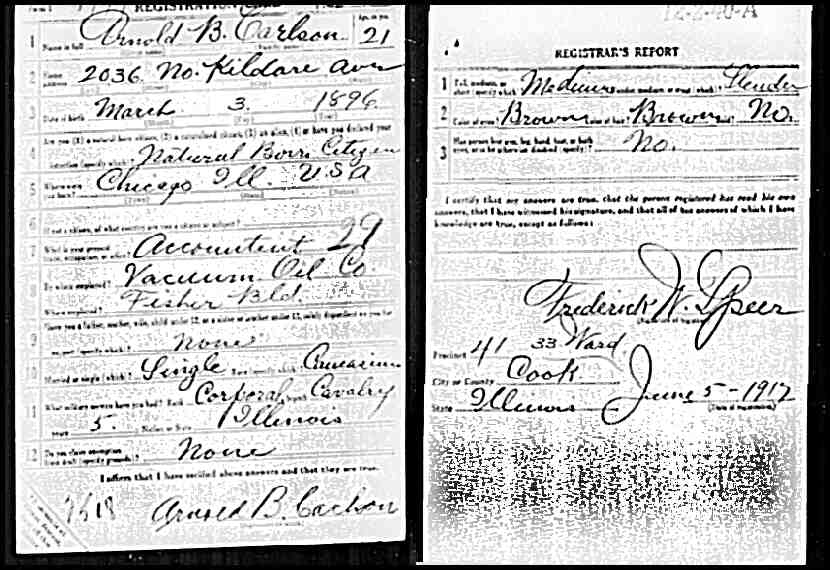 REGISTRATION
1 Name in full Arnold B. Carlson Age, in yrs. 21
2 Home address 2036 No. Kildare Ave
3 Date of birth March 3. 1896
(Month) (Day) (Year)
Are you (1) a natural born citizen, (2) a naturalized citizen, (3) an alien, (4) or have you declared your
4 intention (specify which)? Natural Born Citizen
5 Where were you born? Chicago Ill. U.S.A
(Town) (State) (Nation)
6 If not a citizen, of what country are you a citizen or subject?
7 What is your present trade, occupation, or office? Accountent 29
8 By whom employed? Vacuum Oil Co.
Where employed? Fisher Bld.
9 Have you a father, mother, wife, child under 12, or a sister or brother under 12, solely dependent on you for
support (specify which)? None
10 Married or single (which)? Single Race (specify which)? Caucasian
11 What military service have you had? Rank Corporal branch Cavalry
years 5. Nation or State Illinois
12 Do you claim exemption from draft (specify grounds)? None
I affirm that I have verified above answers and that they are true.
Arnold B. Carlson
REGISTRAR'S REPORT
1 Tall, medium, or short (specify which)? Medium Slender, medium, or stout (which)? Slender
2 Color of eyes? Brown Color of hair? Brown Bald? No.
3 Has person lost arm, leg, hand, foot, or both eyes, or is he otherwise disabled (specify)? No.
I certify that my answers are true, that the person registered has read his own
answers, that I have witnessed his signature, and that all of his answers of which I have
knowledge are true, except as follows:
Frederick W. Speer
(Signature of registrar)
Precinct 41 33 Ward.
City or County Cook
State Illinois June 5-1917
(Date of registration)